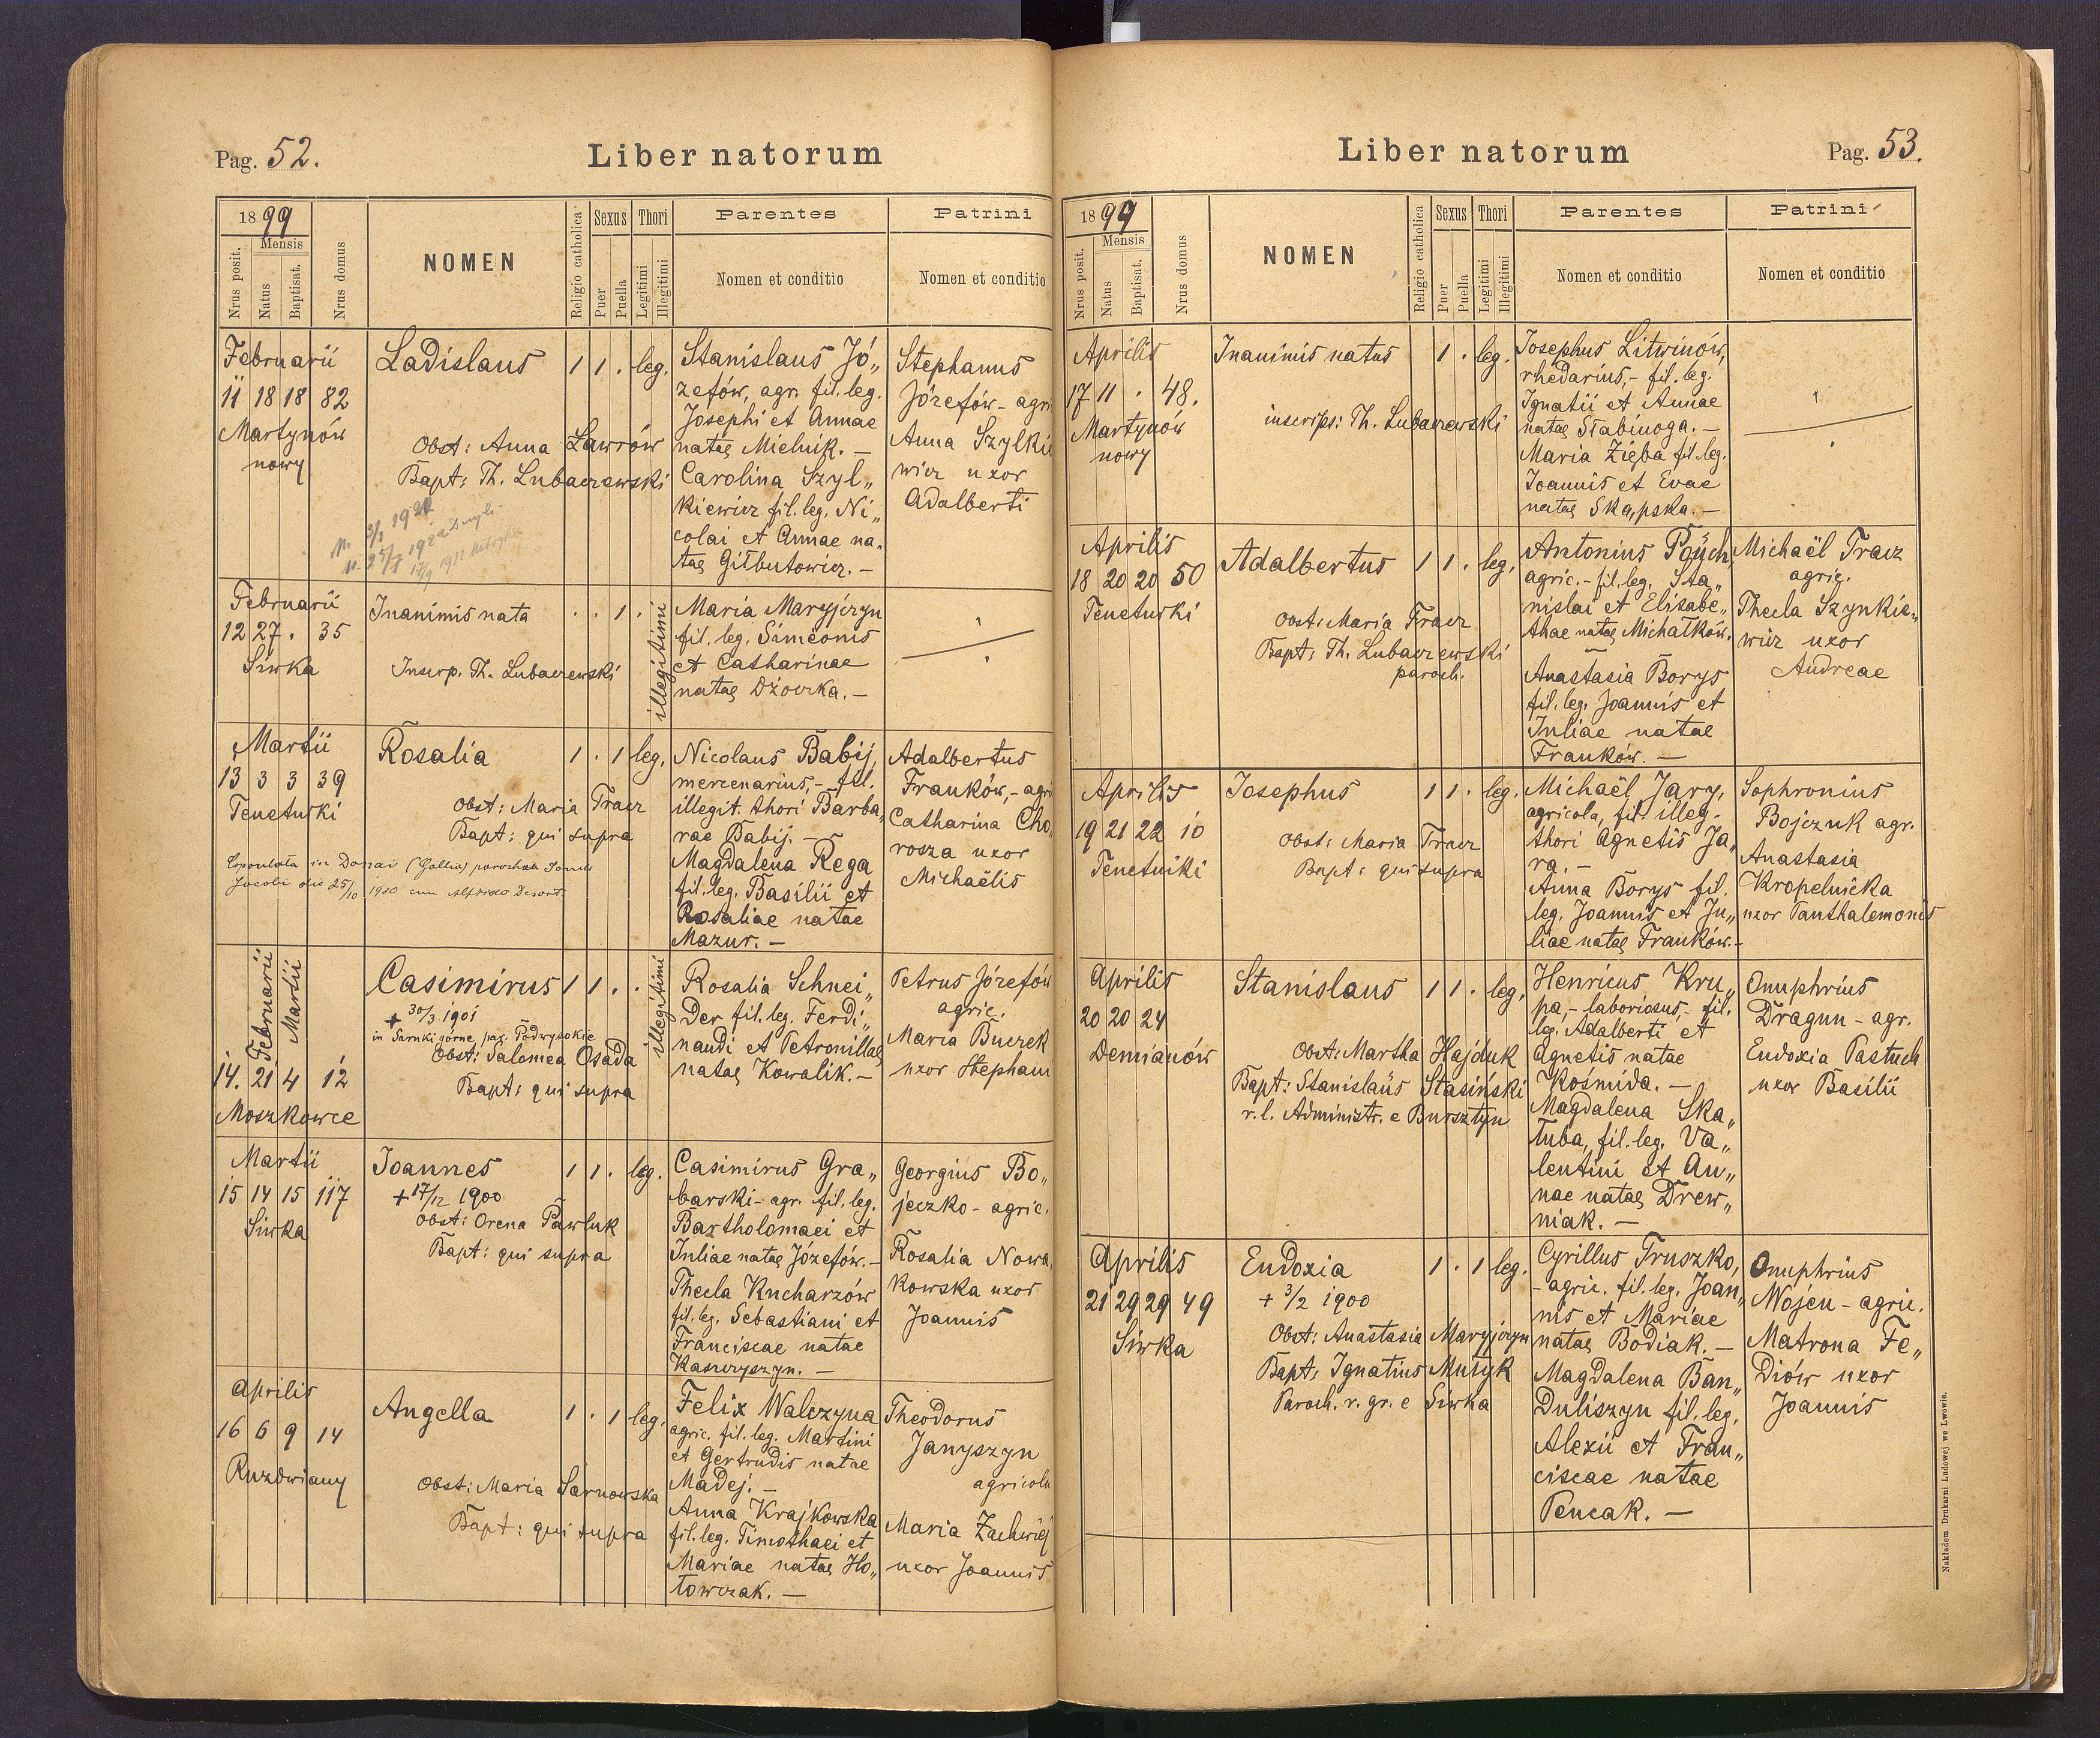 Pag. 52.
Liber natorum
1899
Mensis
Nrus posit.
Natus
Baptisat.
Nrus domus
NOMEN
Religio catholica
Sexus
Puer
Puella
Thori
Legitimi
Illegitimi
Parentes
Nomen et conditio
Patrini
Nomen et conditio
Februarii
11 18 18 82
Martynów
nowy
Ladislaus 1 1 . leg.
Obst: Anna Ławrów
Bapt: Th. Lubaczewski
Stanislaus Jó„
zefów, agr. fil. leg.
Josephi et Annae
natae Mielnik. —
Carolina Szyl„
kiewicz fil. leg. Ni„
colai et Annae na„
tae Gilbutowicz. —
Stephanus
Józefów - agri
Anna Szylkie
wicz uxor
Adalberti
Februarii
12 27 . 35
Siwka
Inanimis nata . . 1 . illegitimi
Inscrp. Th. Lubaczewski
Maria Maryjczyn
fil. leg. Simeonis
et Catharinae
natae Dżoczka. —
Martii
13 3 3 39
Tenetniki
Rosalia 1 . 1 leg.
Obst: Maria Tracz
Bapt: qui supra
Copulata in Douai (Gallia) parochia Sancti
Jacobi die 25/10 1930 cum Alfredo
Nicolaus Babij,
mercenarius, - fil.
illegit. thori Barba„
rae Babij. —
Magdalena Rega
fil. leg. Basilii et
Rosaliae natae
Mazur. —
Adalbertus
Franków, - agri
Catharina Cho„
rosza uxor
Michaëlis
Februarii
Martii
14. 21 4 12
Moszkowce
Casimirus 1 1 . . illegitimi
+ 30/3 1901
in Sarnki górne, par. Podwysokie
Obst: Salomea Osada
Bapt: qui supra
Rosalia Schnei„
der fil. leg. Ferdi„
nandi et Petronillae
natae Kowalik. —
Petrus Józefów
agric.
Maria Buczek
uxor Stephani
Martii
15 14 15 117
Siwka
Joannes 1 1 . leg.
+ 17/12 1900
Obst: Orena Pawluk
Bapt: qui supra
Casimirus Gra„
barski - agr. fil. leg.
Bartholomaei et
Juliae natae Józefów. —
Thecla Kucharzów
fil. leg. Sebastiani et
Franciscae natae
Kaszczyszyn. —
Georgius Bo„
jeczko - agric.
Rosalia Nowa„
kowska uxor
Joannis
Aprilis
16 6 9 14
Ruzdwiany
Angella 1 . 1 leg.
Obst: Maria Sarnowska
Bapt: qui supra
Felix Walczyna
agric. fil. leg. Martini
et Gertrudis natae
Madej. —
Anna Krajkowska
fil. leg. Timothaei et
Mariae natae Ho„
łowczak. —
Theodorus
Janyszyn
agricola
Maria Zachwiej
uxor Joannis
Liber natorum
Pag. 53.
1899
Mensis
Nrus posit.
Natus
Baptisat.
Nrus domus
NOMEN
Religio catholica
Sexus
Puer
Puella
Thori
Legitimi
Illegitimi
Parentes
Nomen et conditio
Patrini
Nomen et conditio
Aprilis
17 11 . 48.
Martynów
nowy
Inanimis natus 1 . leg.
inscrips: Th. Lubaczewski
Josephus Litwinów,
rhedarius, - fil. leg.
Ignatii et Annae
natae Słabinoga. —
Maria Zięba fil. leg.
Joannis et Evae
natae Skąpska. —
Aprilis
18 20 20 50
Tenetniki
Adalbertus 1 1 . leg.
Obst: Maria Tracz
Bapt: Th. Lubaczewski
paroch.
Antonius
agric. - fil. leg. Sta„
nislai et Elisabe„
thae natae Michałków.
Anastasia Borys
fil. leg. Joannis et
Juliae natae
Franków. —
Michaël Tracz
agric.
Thecla Szynkie„
wicz uxor
Andreae
Aprilis
19 21 22 10
Tenetniki
Josephus 1 1 . leg.
Obst: Maria Tracz
Bapt: qui supra
Michaël Jary,
agricola, fil. illeg.
thori Agnetis Ja„
ra. —
Anna Borys fil.
leg. Joannis et Ju„
liae natae Franków. —
Sophronius
Bojczuk agr.
Anastasia
Kropelnicka
uxor Panthalemonis
Aprilis
20 20 24
Demianów
Stanislaus 1 1 . leg.
Obst: Martha Hajduk
Bapt: Stanislaüs Stasiński
r. l. Administr. e Bursztyn
Henricus Kru„
pa, - laboriosus, - fil.
lg. Adalberti et
Agnetis natae
Kośmida. —
Magdalena Ska„
łuba, fil. leg. Va„
lentini et An„
nae natae Drew„
niak. —
Onuphrius
Dragun - agr.
Eudoxia Pastuch
uxor Basilii
Aprilis
21 29 29 49
Siwka
Eudoxia 1 . 1 leg.
+ 3/2 1900
Obst: Anastasia Maryjczyn
Bapt: Ignatius Mułyk
Paroch. r. gr. e Siwka
Cyrillus Truszko,
- agric. fil. leg. Joan„
nis et Mariae
natae Bodiak. —
Magdalena Ban„
duliszyn fil. leg.
Alexii et Fran„
ciscae natae
Pencak. —
Onuphrius
Wojen - agric.
Matrona Fe„
diów uxor
Joannis
Nakładem Drukarni Ludowej we Lwowie.